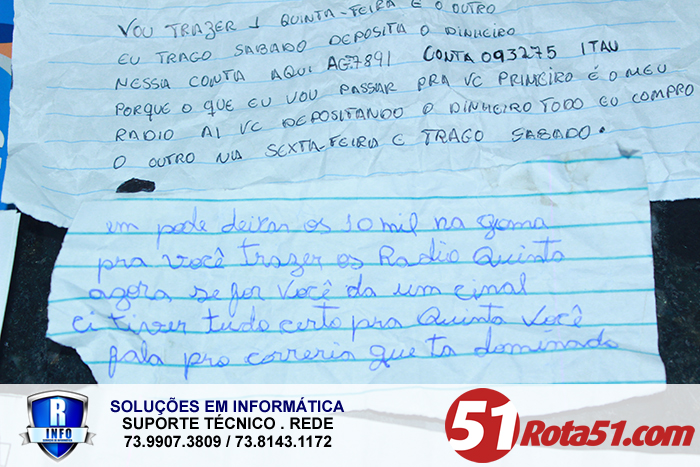 VOU TRAZER 1 QUINTA-FEIRA E O OUTRO
EU TRAGO SABADO DEPOSITA O DINHEIRO
NESSIA CONTA AQUI AG7891 CONTA 093275 ITAU
PORQUE O QUE EU VOU PASSAR PRA VC PRIMEIRO É O MEU
RADIO AI VC DEPOSITANDO O DINHEIRO TODO EU COMPRO
O OUTRO NA SEXTA-FEIRA E TRAGO SABADO.
em pode deixar os 10 mil na goma
pra você trazer os Radio Quinta
agora se for você da um cinal
ci tiver tudo certo pra Quinta você
fala pro correria que ta dominado
R
INFO
SOLUÇÕES EM INFORMÁTICA
SUPORTE TÉCNICO . REDE
73.9907.3809 / 73.8143.1172
51 Rota51.com